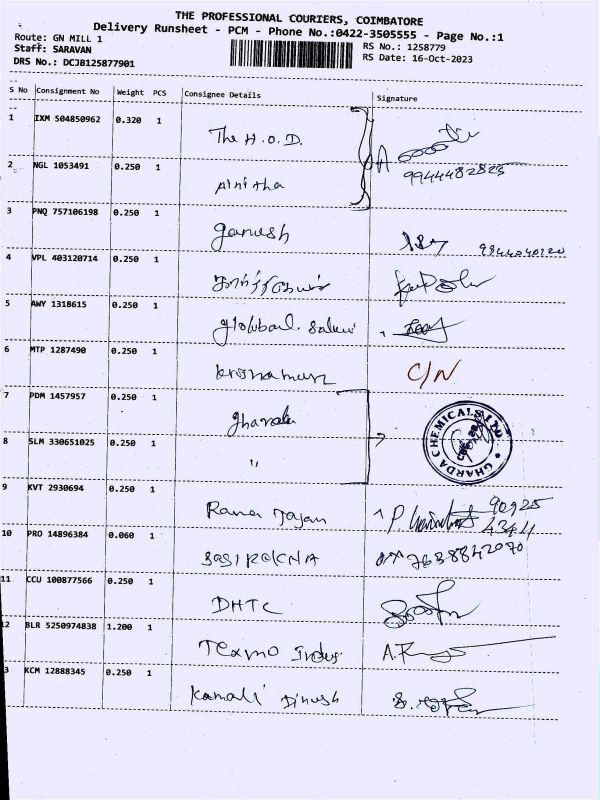 THE PROFESSIONAL COURIERS, COIMBATORE
Delivery Runsheet - PCM - Phone No.:0422-3505555 - Page No.:1
Route: GN MILL 1
Staff: SARAVAN
DRS No.: DCJB125877901
RS No.: 1258779
RS Date: 16-Oct-2023
S No Consignment No Weight PCS Consignee Details Signature
1 IXM 504850962 0.320 1
The H.O.D.
2 NGL 1053491 0.250 1
9944482825
3 PNQ 757106198 0.250 1
ganesh
4 VPL 403120714 0.250 1
5 AWY 1318615 0.250 1
6 MTP 1287490 0.250 1
C/N
7 PDM 1457957 0.250 1
gharda
GHARDA CHEMICALS LTD
8 SLM 330651025 0.250 1
"
9 KVT 2930694 0.250 1
Rama Rajan
90925
4344
10 PRO 14896384 0.060 1
SASIREKHA
7638842070
11 CCU 100877566 0.250 1
DHTC
12 BLR 5250974838 1.200 1
Texmo Indus.
3 KCM 12888345 0.250 1
Kamali Dinesh